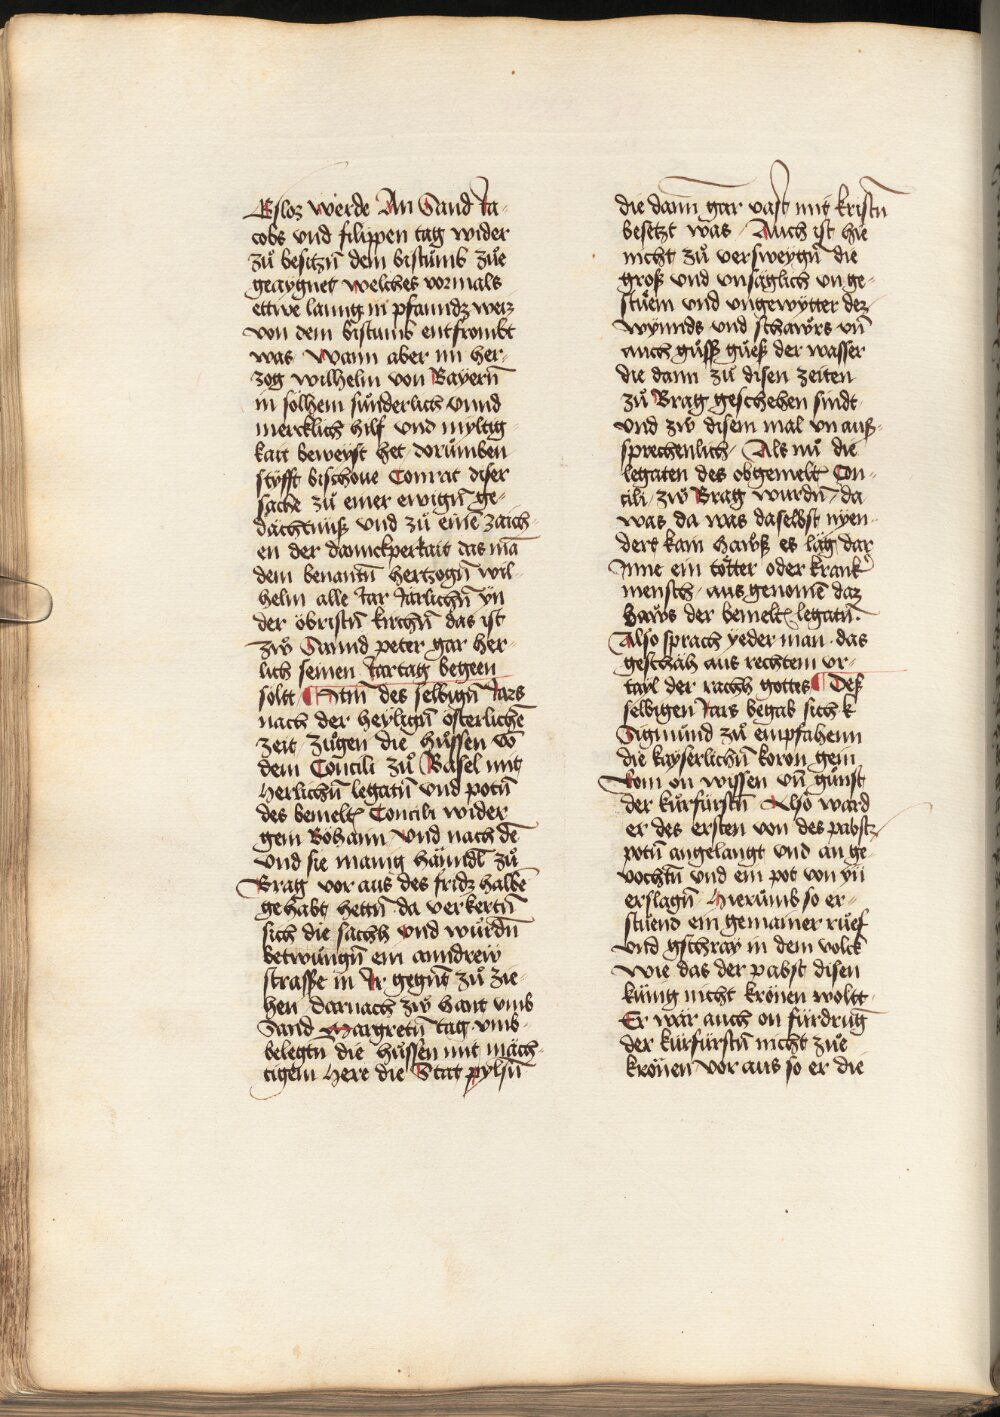 Gsloz werde An Sand Ja-
cobs vnd filippen tag wider
zů besitzn̄ dem bistůmb zůe
geaygnet welches vormals
ettwe lanng in pfanndz weiz
von dem bistumb entfrömbt
was Wann aber im her-
zog wilhelm von Bayern̄
in sölhem sůnderlich vnnd
mercklich hilf vnd myltig-
kait beweyst het dorůmben
styfft bischoue Conrat diser
sache zů einer ewign̄ ge-
dächtnuß vnd zů einē zaich-
en der dannckperkait das mā
dem benantn̄ hertzogn̄ wil-
helm alle Jar Järlichn̄ yn
der öbristn̄ kirchn̄ das ist
zẘ Sannd peter gar her-
lich seinen Jartag begeen
soltt ¶ Itm̄ des selbign̄ Jars
nach der heylign̄ österlichē
zeit zůgen die hůssen vō
dem Concili zů Basel mit
herlichn̄ legatn̄ vnd potn̄
des bemelt̄ Concili wider
gem Böhann vnd nach dē
vnd sie manig hänndl̄ zů
Brag vor aus des fridz halbē
gehabt hettn̄ da verkertn̄
sich die sachh vnd wůrdn̄
betwůngn̄ ein anndrew
strasse in Jr gegnt zů zie-
hen darnach zẘ hant vmb
Sand Margretn̄ tag vmb-
belegtn̄ die hůssen mit mäch-
tigem Here die Stat pylsn̄
die dann gar vast mit kristn̄
besetzt was Auch ist hie
nicht zů versweygn̄ die
groß vnd vnsäglich vn ge-
stůem vnd vngewytter dez
wynnds vnd schaẘrs vn̄
auch gůss güeß der wasser
die dann zů disen zeiten
zů Brag geschehen sindt
vnd zẘ disem mal vn auß-
sprechenlich Als nů die
legaten des obgemelt̄ Con-
cili zẘ Brag wurdn̄ da
was da was daselbst nyen-
dert kain haẘß es läg dar
Jnne ein tötter oder krank̄
mensch aus genomē daz
haẘs der bemelt̄ legatn̄
Also sprach yeder man das
geschäh aus rechtem vr-
tayl der rachh gottes ¶ Deß
selbigen Jars begab sich k
Sigmund zů empfahenn
die kayserlichn̄ koron gein
Rom on wissen vn̄ gůnst
der kůrfürstn̄ Also ward
er des ersten von des pabstz
potn̄ angelangt vnd an ge-
vochtn̄ vnd ein pot von yn̄
erslagn̄ Hierůmb so er-
stůend ein gemainer růef
vnd gschray in dem volck
wie das der pabst disen
künig nicht krönen woltt
Er wär auch on fürdruḡ
der kürfürstn̄ nicht zůe
krönen vor aus so er die